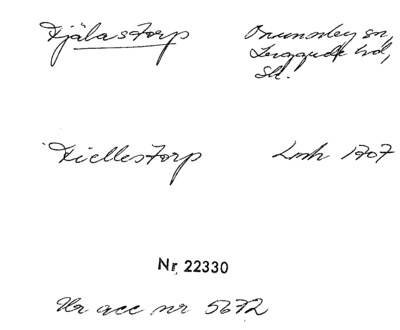 Fjälastorp
Brunnby sn,
Luggude hd,
Sk.
Fiellestorp
Lmh 1707
Nr 22330
Ur acc nr 5672